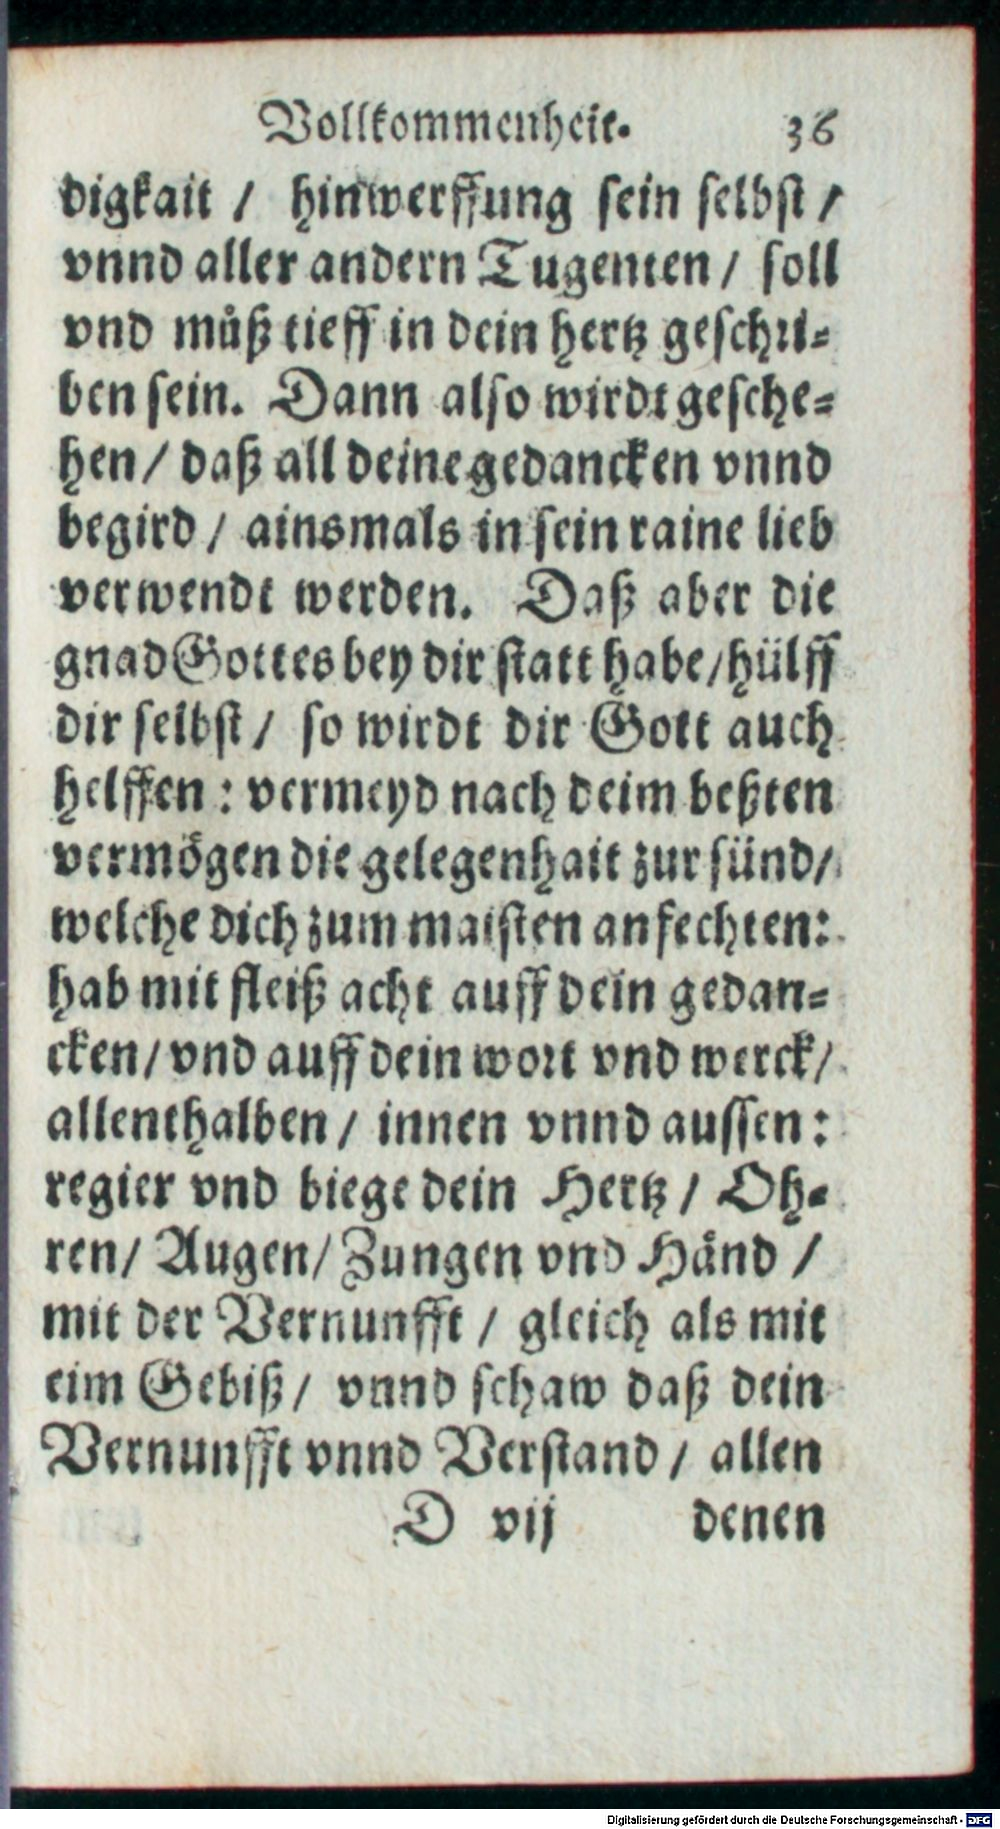 Vollkommenheit. 36
digkait / hinwerffung sein selbst /
vnnd aller andern Tugenten / soll
vnd můß tieff in dein hertz geschri-
ben sein. Dann also wirdt gesche-
hen / daß all deine gedancken vnnd
begird / ainsmals in sein raine lieb
verwendt werden. Daß aber die
gnad Gottes bey dir statt habe / hülff
dir selbst / so wirdt dir Gott auch
helffen : vermeyd nach deim beßten
vermögen die gelegenhait zur sünd /
welche dich zum maisten anfechten :
hab mit fleiß acht auff dein gedan-
cken / vnd auff dein wort vnd werck /
allenthalben / innen vnnd aussen :
regier vnd biege dein Hertz / Oh-
ren / Augen / Zungen vnd Händ /
mit der Vernunfft / gleich als mit
eim Gebiß / vnnd schaw daß dein
Vernunfft vnnd Verstand / allen
D vij denen
Digitalisierung gefördert durch die Deutsche Forschungsgemeinschaft - DFG